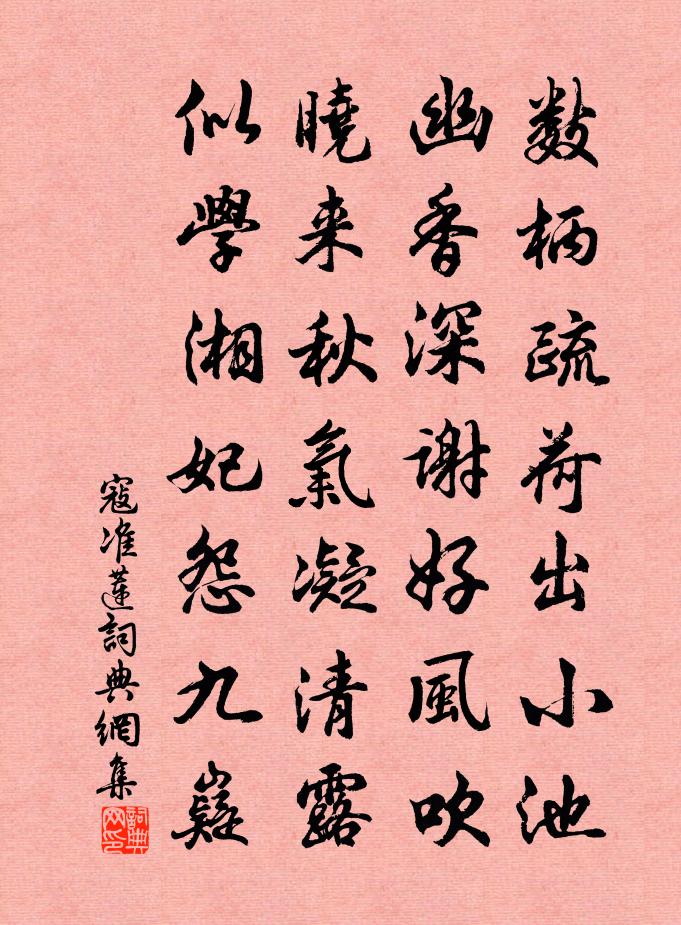 数柄疏荷出小池
幽香深謝好風吹
曉来秋氣凝清露
似學湘妃怨九嶷
寇准蓮詞典網集
詞典网印